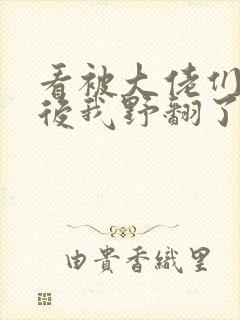 看被大佬们
後我野翻了
由貴香織里